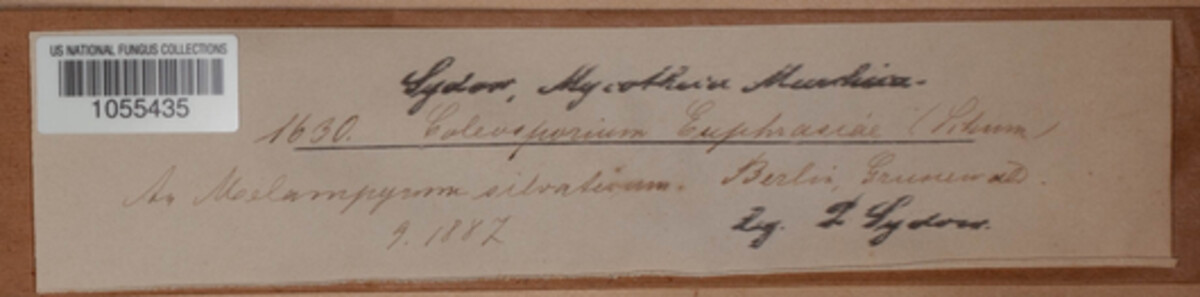 US NATIONAL FUNGUS COLLECTIONS
1055435
Sydow, Mycotheca Marchica.
1630. Coleosporium Euphrasiae (Schum)
An Melampyrum silvaticum. Berlin, Grunewald.
9. 1887
leg. P Sydow.